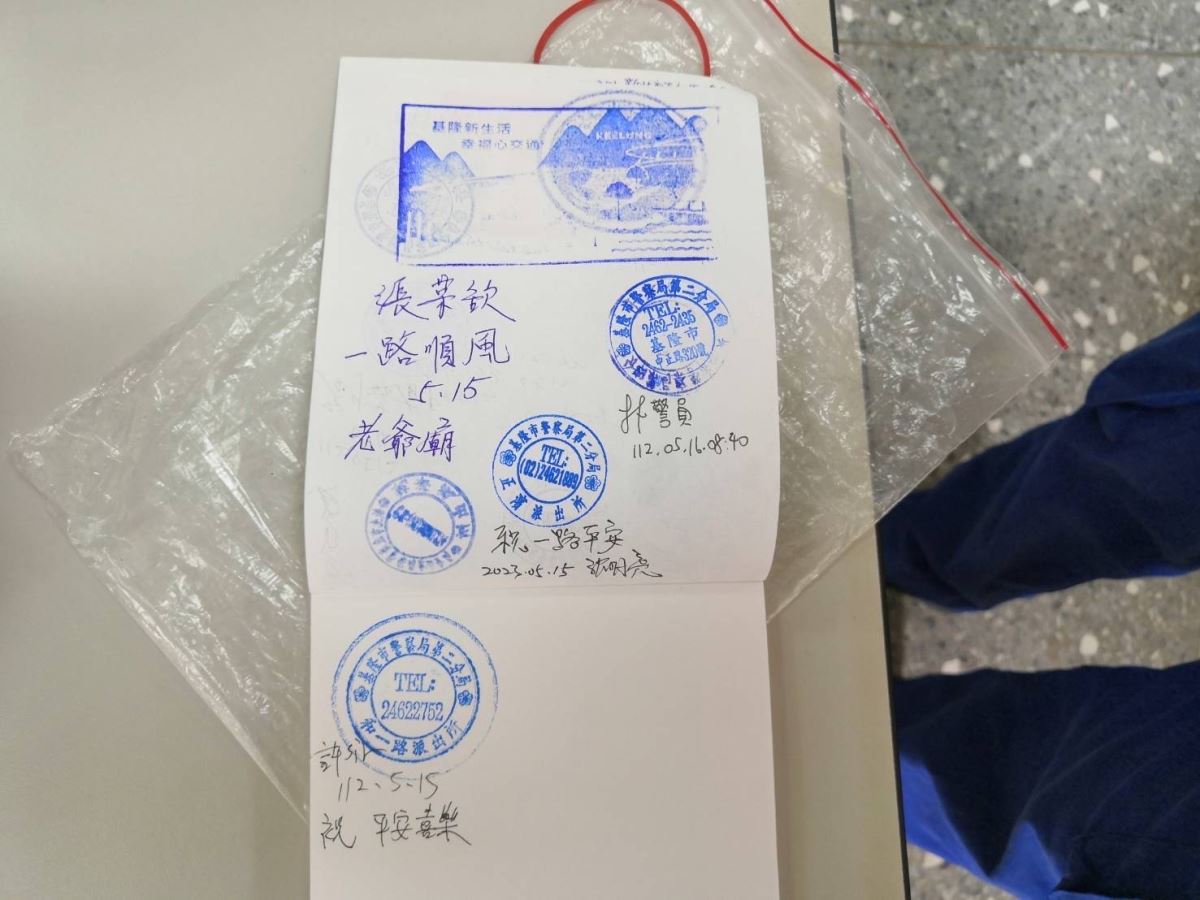 基隆新生活
幸福心交通
KEELUNG
張榮欽
一路順風
5.15
老爺廟
基隆市警察局第二分局
TEL:
2462-2435
基隆市
中正路320號
林警員
112.05.16.08:40
基隆市警察局第二分局
TEL:
(02)24621889
正濱派出所
祝一路平安
2023.05.15 沈明亮
基隆市警察局第二分局
TEL:
24622752
和一路派出所
許
112.5.15
祝 平安喜樂